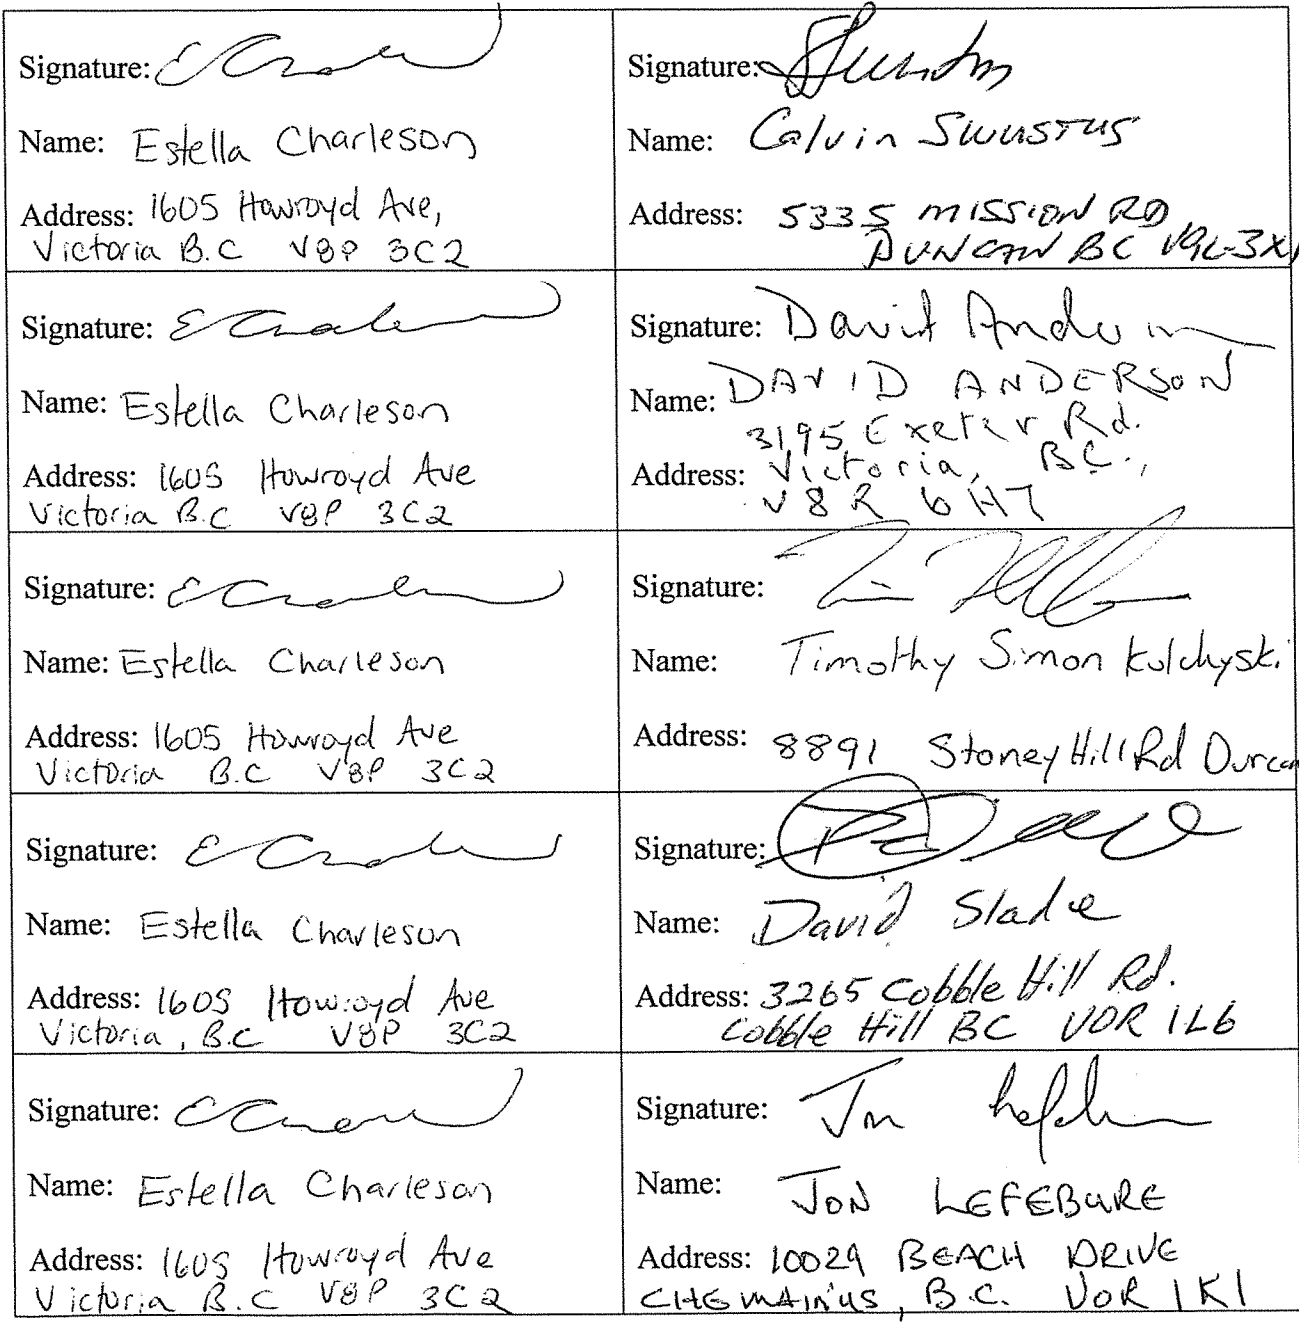 Signature:
Name: Estella Charleson
Address: 1605 Howroyd Ave,
Victoria B.C V8P 3C2
Signature:
Name: Calvin Swustus
Address: 5335 MISSION RD
DUNCAN BC V9L-3X1
Signature:
Name: Estella Charleson
Address: 1605 Howroyd Ave
Victoria B.C V8P 3C2
Signature: David Anderson
Name: DAVID ANDERSON
3195 Exeter Rd.
Address: Victoria, BC.,
V8R 6H7
Signature:
Name: Estella Charleson
Address: 1605 Howroyd Ave
Victoria B.C V8P 3C2
Signature:
Name: Timothy Simon Kulchyski
Address: 8891 Stoney Hill Rd Duncan
Signature:
Name: Estella Charleson
Address: 1605 Howroyd Ave
Victoria, B.C V8P 3C2
Signature:
Name: David Slade
Address: 3265 Cobble Hill Rd.
Cobble Hill BC V0R 1L6
Signature:
Name: Estella Charleson
Address: 1605 Howroyd Ave
Victoria B.C V8P 3C2
Signature: Jon
Name: JON LEFEBURE
Address: 10029 BEACH DRIVE
CHEMAINUS, B.C. V0R 1K1